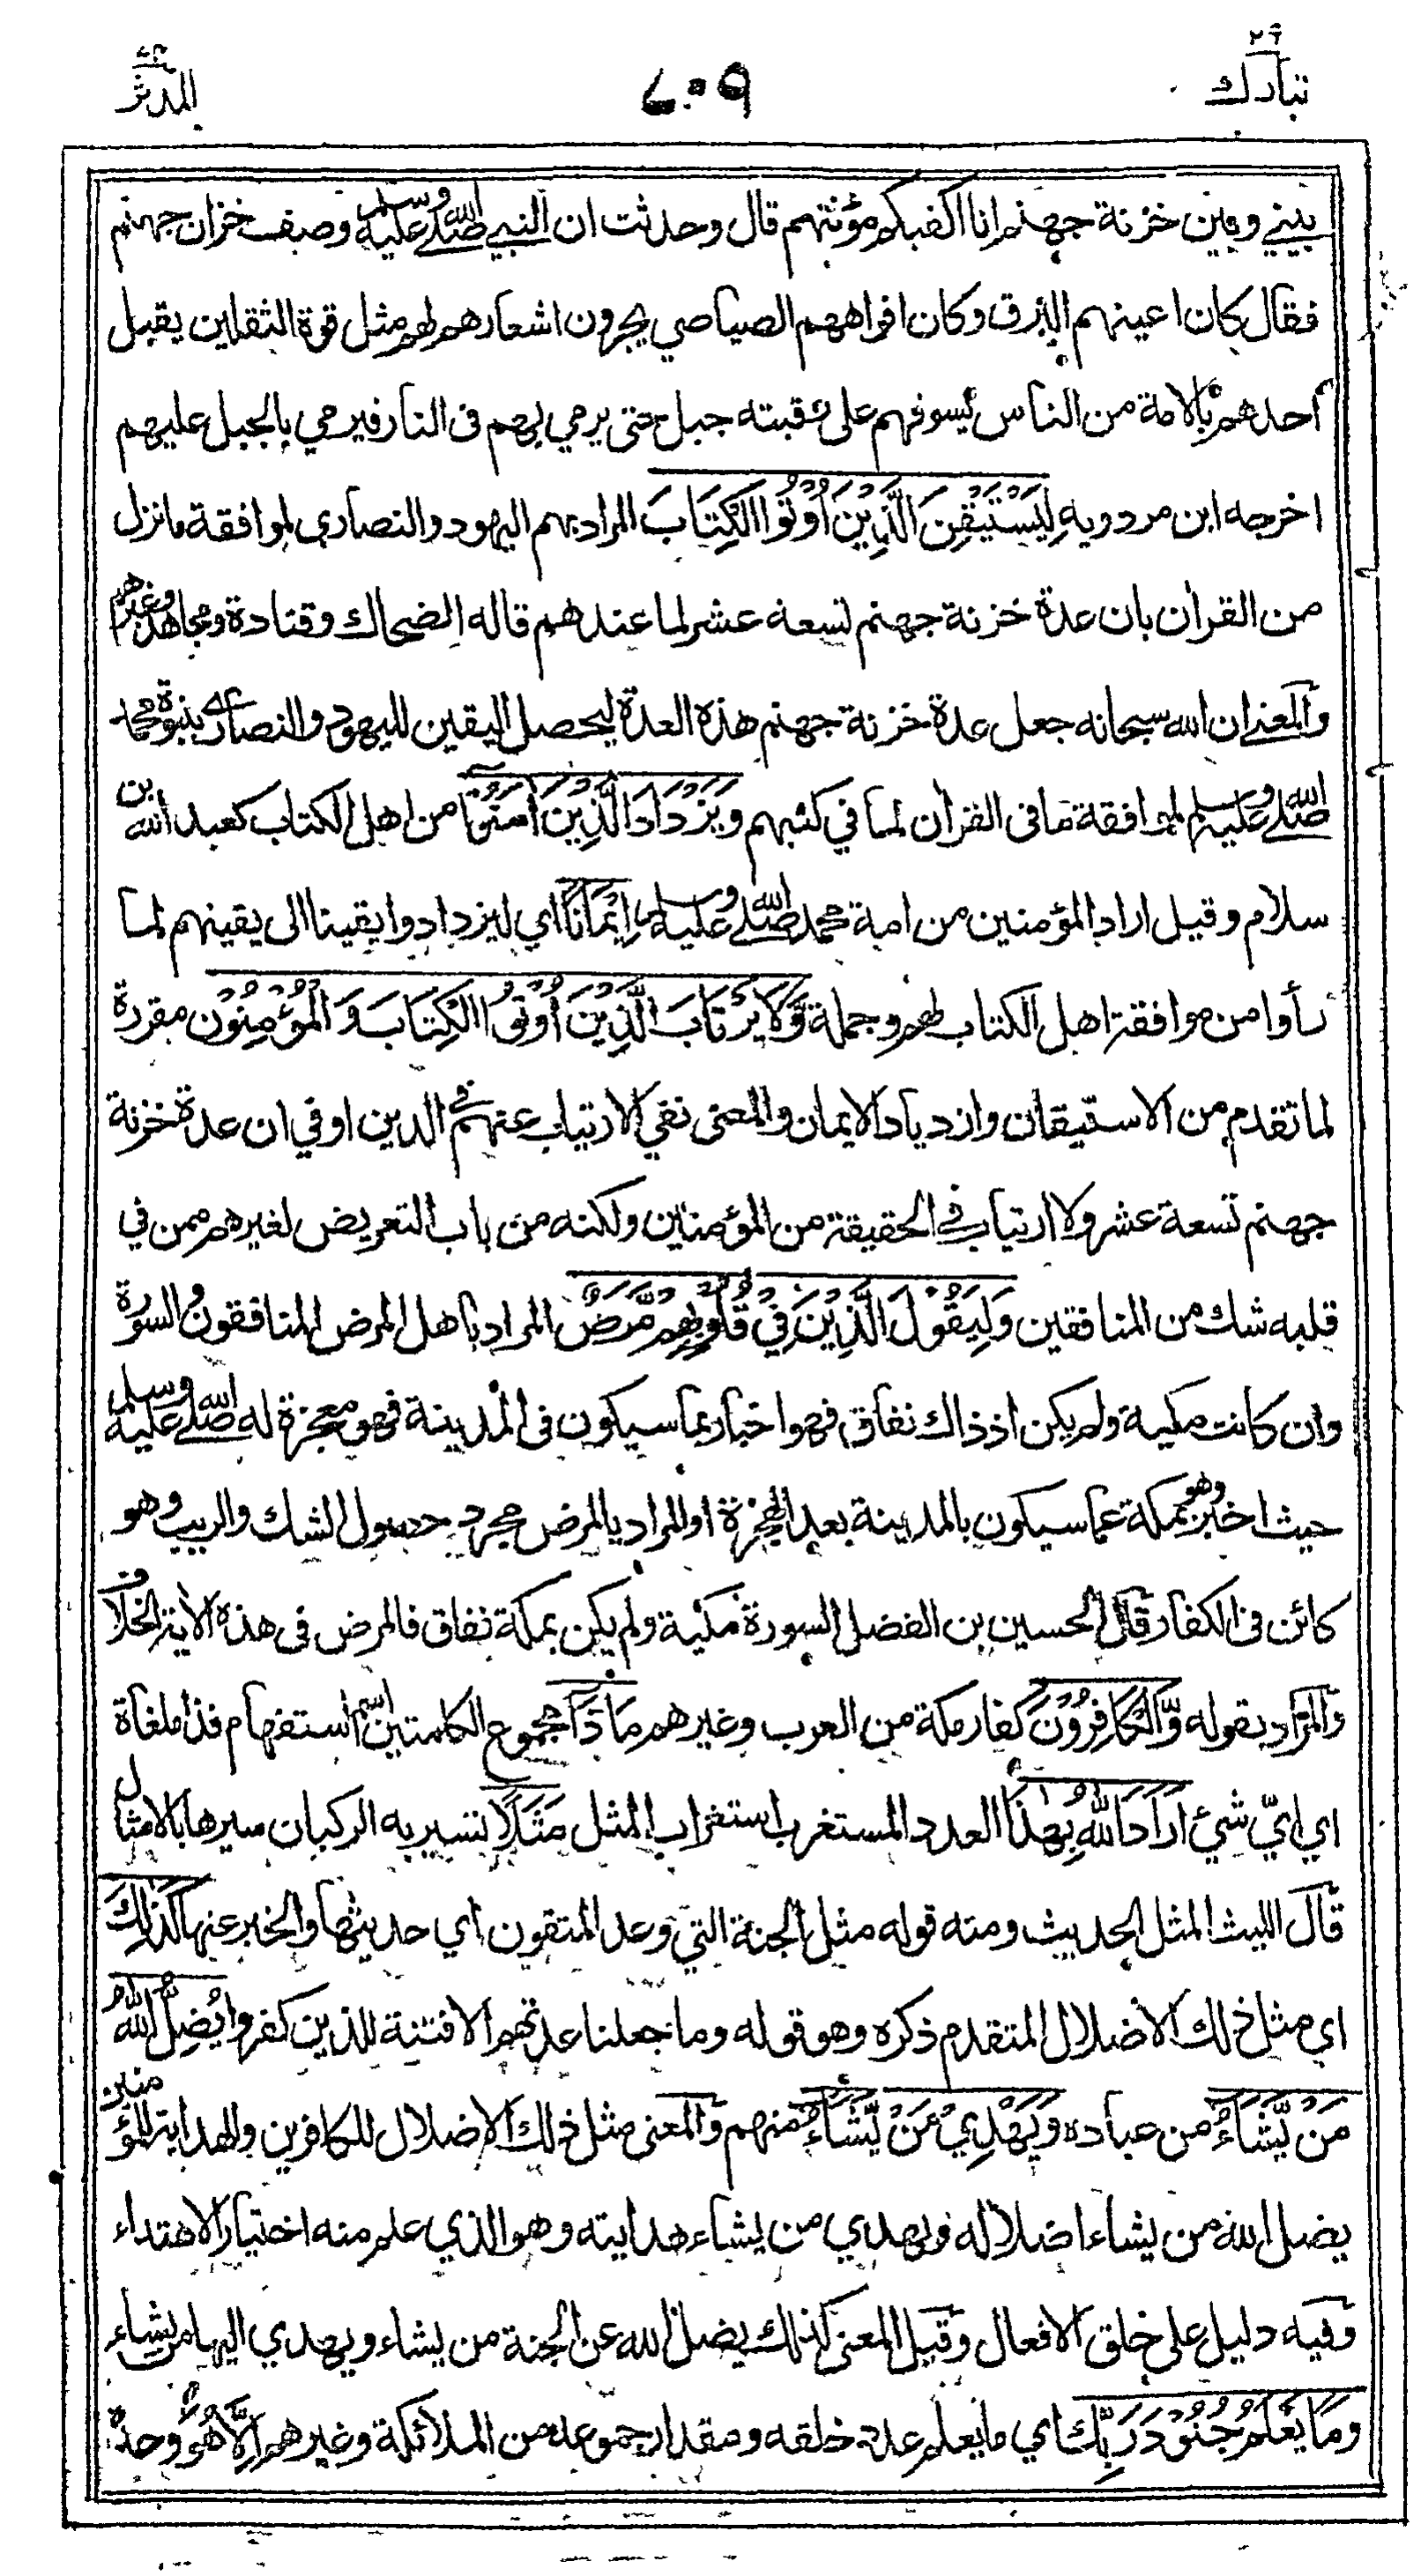 تبارك ٢٩
٤٠٩
المدثر ٧٤
بيني وبين خزنة جهنم انا اكفيكم مؤنتهم قال وحدثت ان النبي صلى الله عليه وسلم وصف خزان جهنم
فقال كان اعينهم البرق وكان افواههم الصياصي يجرون اشعارهم لهم مثل قوة الثقلين يقبل
احدهم بالامة من الناس يسوقهم على رقبته جبل حتى يرمي بهم فى النار فيرمي بالجبل عليهم
اخرجه ابن مردويه لِيَسْتَيْقِنَ الَّذِيْنَ اُوْتُوا الْكِتَابَ المراد بهم اليهود والنصارى لموافقة ما نزل
من القرآن بان عدة خزنة جهنم تسعة عشر لما عندهم قاله الضحاك وقتادة ومجاهد وغيرهم
والمعنى ان الله سبحانه جعل عدة خزنة جهنم هذه العدة ليحصل اليقين لليهود والنصارى بنبوة محمد
صلى الله عليه وسلم لموافقة ما فى القرآن لما في كتبهم وَيَزْدَادَ الَّذِيْنَ اٰمَنُوْا من اهل الكتاب كعبد الله بن
سلام وقيل اراد المؤمنين من امة محمد صلى الله عليه وسلم اِيْمَانًا اي ليزدادوا يقينا الى يقينهم لما
رأوا من موافقة اهل الكتاب لهم وجملة وَّلَا يَرْتَابَ الَّذِيْنَ اُوْتُوا الْكِتَابَ وَالْمُؤْمِنُوْنَ مقررة
لما تقدم من الاستيقان وازدياد الايمان والمعنى نفي الارتياب عنهم في الدين او في ان عدة خزنة
جهنم تسعة عشر ولا ارتياب في الحقيقة من المؤمنين ولكنه من باب التعريض لغيرهم ممن في
قلبه شك من المنافقين وَلِيَقُوْلَ الَّذِيْنَ فِيْ قُلُوْبِهِمْ مَّرَضٌ المراد باهل المرض المنافقون والسورة
وان كانت مكية ولم يكن اذ ذاك نفاق فهو اخبار بما سيكون فى المدينة فهو معجزة له صلى الله عليه وسلم
حيث اخبر وهو بمكة عما سيكون بالمدينة بعد الهجرة او المراد بالمرض مجرد حصول الشك والريب وهو
كائن فى الكفار قال الحسين بن الفضل السورة مكية ولم يكن بمكة نفاق فالمرض فى هذه الآية الخلاف
والمراد بقوله وَّالْكَافِرُوْنَ كفار مكة من العرب وغيرهم مَاذَا مجموع الكلمتين اسم استفهام فذا ملغاة
اي ايّ شيْ اَرَادَ اللّٰهُ بِهٰذَا العدد المستغرب استغراب المثل مَثَلًا تسير به الركبان سيرها بالامثال
قال الليث المثل الحديث ومنه قوله مثل الجنة التي وعد المتقون اي حديثها والخبر عنها كَذٰلِكَ
اي مثل ذلك الاضلال المتقدم ذكره وهو قوله وما جعلنا عدتهم الا فتنة للذين كفروا يُضِلُّ اللّٰهُ
مَنْ يَّشَاءُ من عباده وَيَهْدِيْ مَنْ يَّشَاءُ منهم والمعنى مثل ذلك الاضلال للكافرين والهداية للمؤمنين
يضل الله من يشاء اضلاله ويهدي من يشاء هدايته وهو الذي علم منه اختيار الاهتداء
وفيه دليل على خلق الافعال وقيل المعنى كذلك يضل الله عن الجنة من يشاء ويهدي اليها من يشاء
وَمَا يَعْلَمُ جُنُوْدَ رَبِّكَ اي ما يعلم عدد خلقه ومقدار جموعه من الملائكة وغيرهم اِلَّا هُوَ وحده